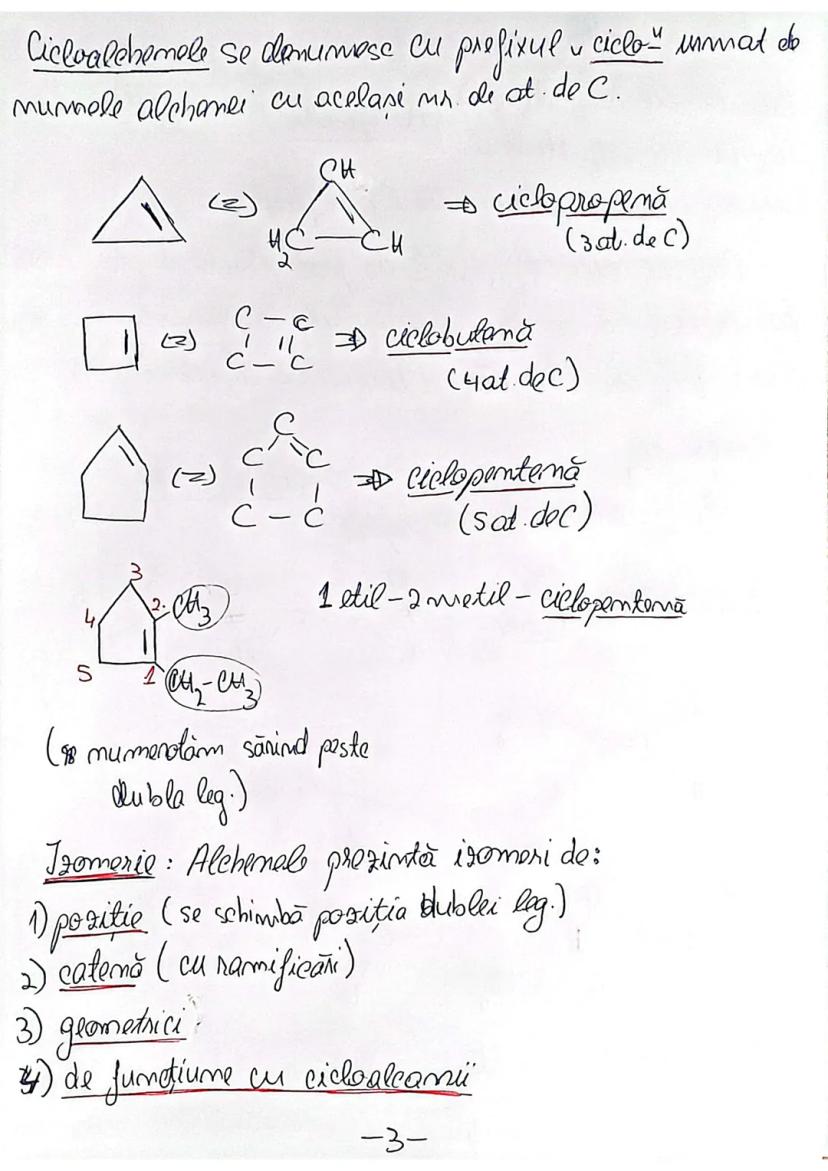 Cicloalchenele se denumesc cu prefixul „ciclo-" urmat de
numele alchenei cu același nr. de at. de C.
CH
(=) => ciclopropenă
H2C CH (3 at. de C)
C - C
(=) => ciclobutenă
C - C (4 at. de C)
C
(=) C C => ciclopentenă
C - C (5 at. de C)
3
4 2. CH3 1 etil - 2 metil - ciclopentenă
5 1 CH2-CH3
( numerotăm sărind peste
dubla leg.)
Izomerie: Alchenele prezintă izomeri de:
1) poziție (se schimbă poziția dublei leg.)
2) catenă (cu ramificări)
3) geometrici
4) de funcțiune cu cicloalcanii
-3-